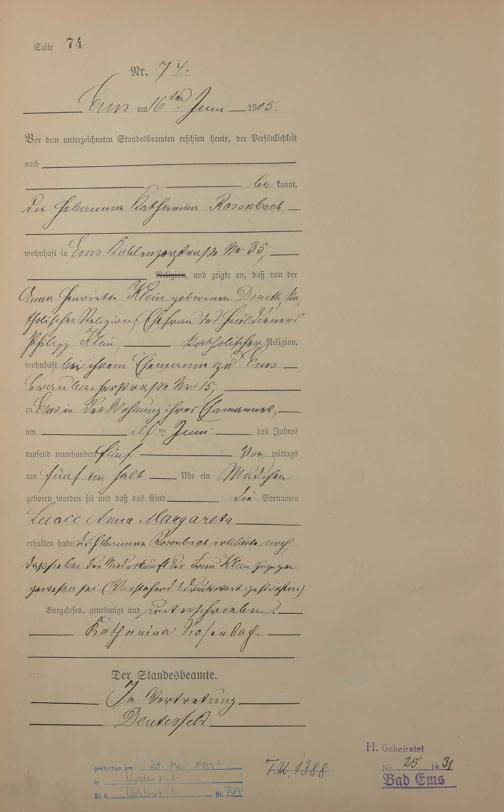 Seite 74
Nr. 74.
Ems am 16ten Juni 1905.
Vor dem unterzeichneten Standesbeamten erschien heute, der Persönlichkeit
nach
be kannt,
die Hebamme Katharina Rosenbach,
wohnhaft in Ems Koblenzerstraße Nr. 35,
Religion, und zeigte an, daß von der
Anna Henriette Klein geborenen ka
tholischer Religion, Ehefrau des Hausdieners
Philipp Klein, katholischer Religion,
wohnhaft bei ihrem Ehemanne zu Ems
Braubacherstraße Nr. 15,
zu Ems in der Wohnung ihres Ehemannes,
am elften Juni des Jahres
tausend neunhundert fünf Vor mittags
um fünf ein halb Uhr ein Mädchen
geboren worden sei und daß das Kind die Vornamen
Anna Margareta
erhalten habe die Hebamme Rosenbach erklärte noch
daß sie bei der Niederkunft der Frau Klein zugegen
gewesen sei. (Vorstehend 1 Druckwort gestrichen)
Vorgelesen, genehmigt und unterschrieben.
Katharina Rosenbach.
Der Standesbeamte.
In Vertretung
gestorben am 20.
in
St. A. Nr.
1388
H. Geheiratet
Nr. 25 1931
Bad Ems